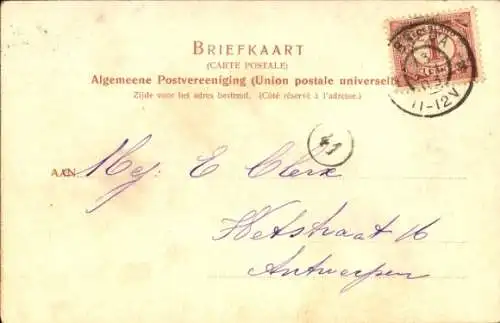 BRIEFKAART
(CARTE POSTALE)
Algemeene Postvereeniging (Union postale universelle)
Zijde voor het adres bestemd. (Côté réservé à l'adresse.)
11-12V
41
AAN Mej. E Clerx
Wetstraat 16
Antwerpen